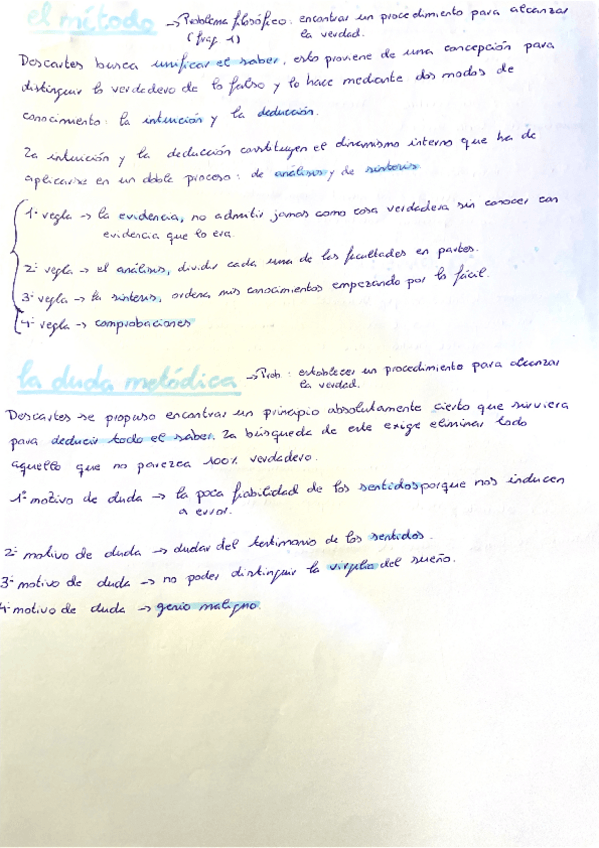 el mítodo → Problema filosófico: encontrar un procedimiento para alcanzar
(frag 1) la verdad.
Descartes busca unificar el saber, esto proviene de una concepción para
distinguir lo verdadero de lo falso y lo hace mediante dos modos de
conocimiento: la intuición y la deducción.
La intuición y la deducción constituyen el dinamismo interno que ha de
aplicarse en un doble proceso: de análisis y de síntesis
1ª regla → la evidencia, no admitir jamas como cosa verdadera sin conocer con
evidencia que lo era.
2ª regla → el análisis, dividir cada una de las facultades en partes.
3ª regla → la síntesis, ordena, mis conocimientos empezando por lo fácil.
4ª regla → comprobaciones
la duda metódica → Prob: establecer un procedimiento para alcanzar
la verdad.
Descartes se propuso encontrar un principio absolutamente cierto que sirviera
para deducir todo el saber. La búsqueda de este exige eliminar todo
aquello que no parezca 100% verdadero.
1º motivo de duda → la poca fiabilidad de los sentidos porque nos inducen
a error.
2º motivo de duda → dudar del testimonio de los sentidos.
3º motivo de duda → no poder distinguir la vigilia del sueño.
4º motivo de duda → genio maligno.